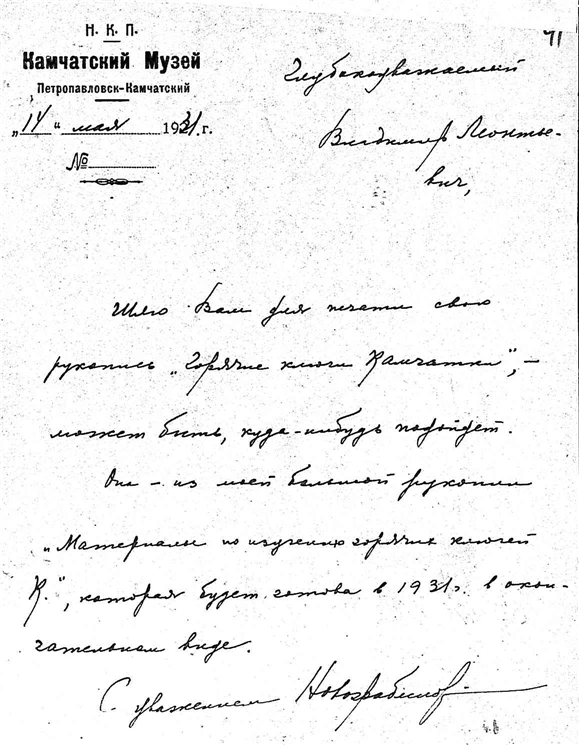 71
Н. К. П.
Камчатский Музей
Петропавловск-Камчатский
„14" мая 1931 г.
№
Глубокоуважаемый
Владимир Леонтье-
вич,
Шлю Вам для печати свою
рукопись „Горячие ключи Камчатки", –
может быть, куда-нибудь подойдет.
Она – из моей большой рукописи
„Материалы по изучению горячих ключей
К.", которая будет готова в 1931 г. в окон-
чательном виде.
С уважением Новограбленов